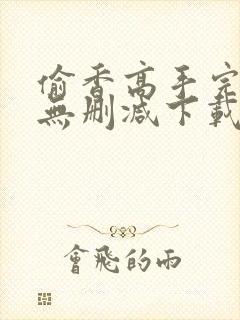 偷香高手完
無刪減下載
會飛的雨